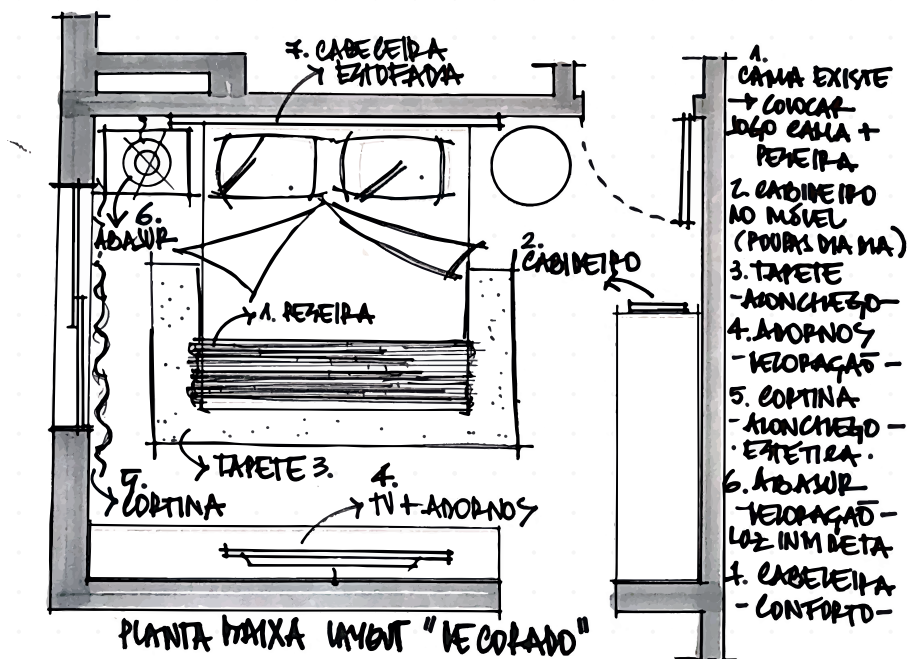 7. CABECEIRA
ESTOFADA
6.
ABAJUR
2.
CABIDEIRO
1. PESEIRA
TAPETE 3.
5.
CORTINA
4.
TV + ADORNOS
PLANTA BAIXA LAYOUT "DECORADO"
1.
CAMA EXISTE
→ COLOCAR
JOGO CAMA +
PESEIRA
2. CABIDEIRO
NO MÓVEL
(ROUPAS DIA DIA)
3. TAPETE
- ACONCHEGO -
4. ADORNOS
- DECORAÇÃO -
5. CORTINA
- ACONCHEGO -
· ESTETICA ·
6. ABAJUR
- DECORAÇÃO -
LUZ INDIRETA
7. CABECEIRA
- CONFORTO -